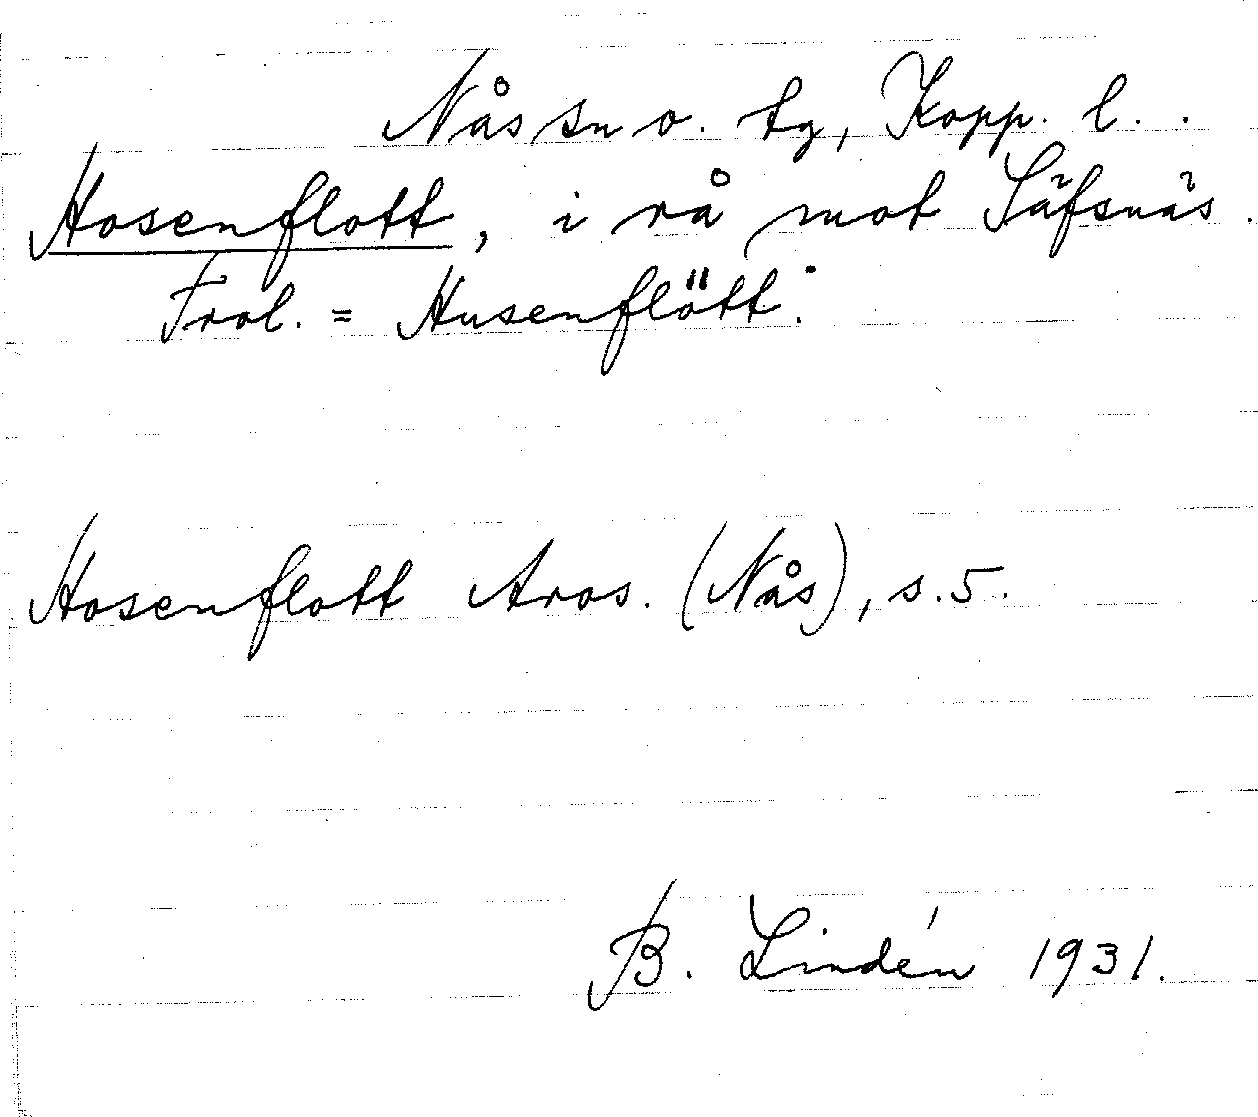 Nås sn o. tg, Kopp. l.
Hosenflott, i rå mot Säfsnäs.
Trol. = Husenflött.
Hosenflott Aros. (Nås), s. 5.
B. Lindén 1931.